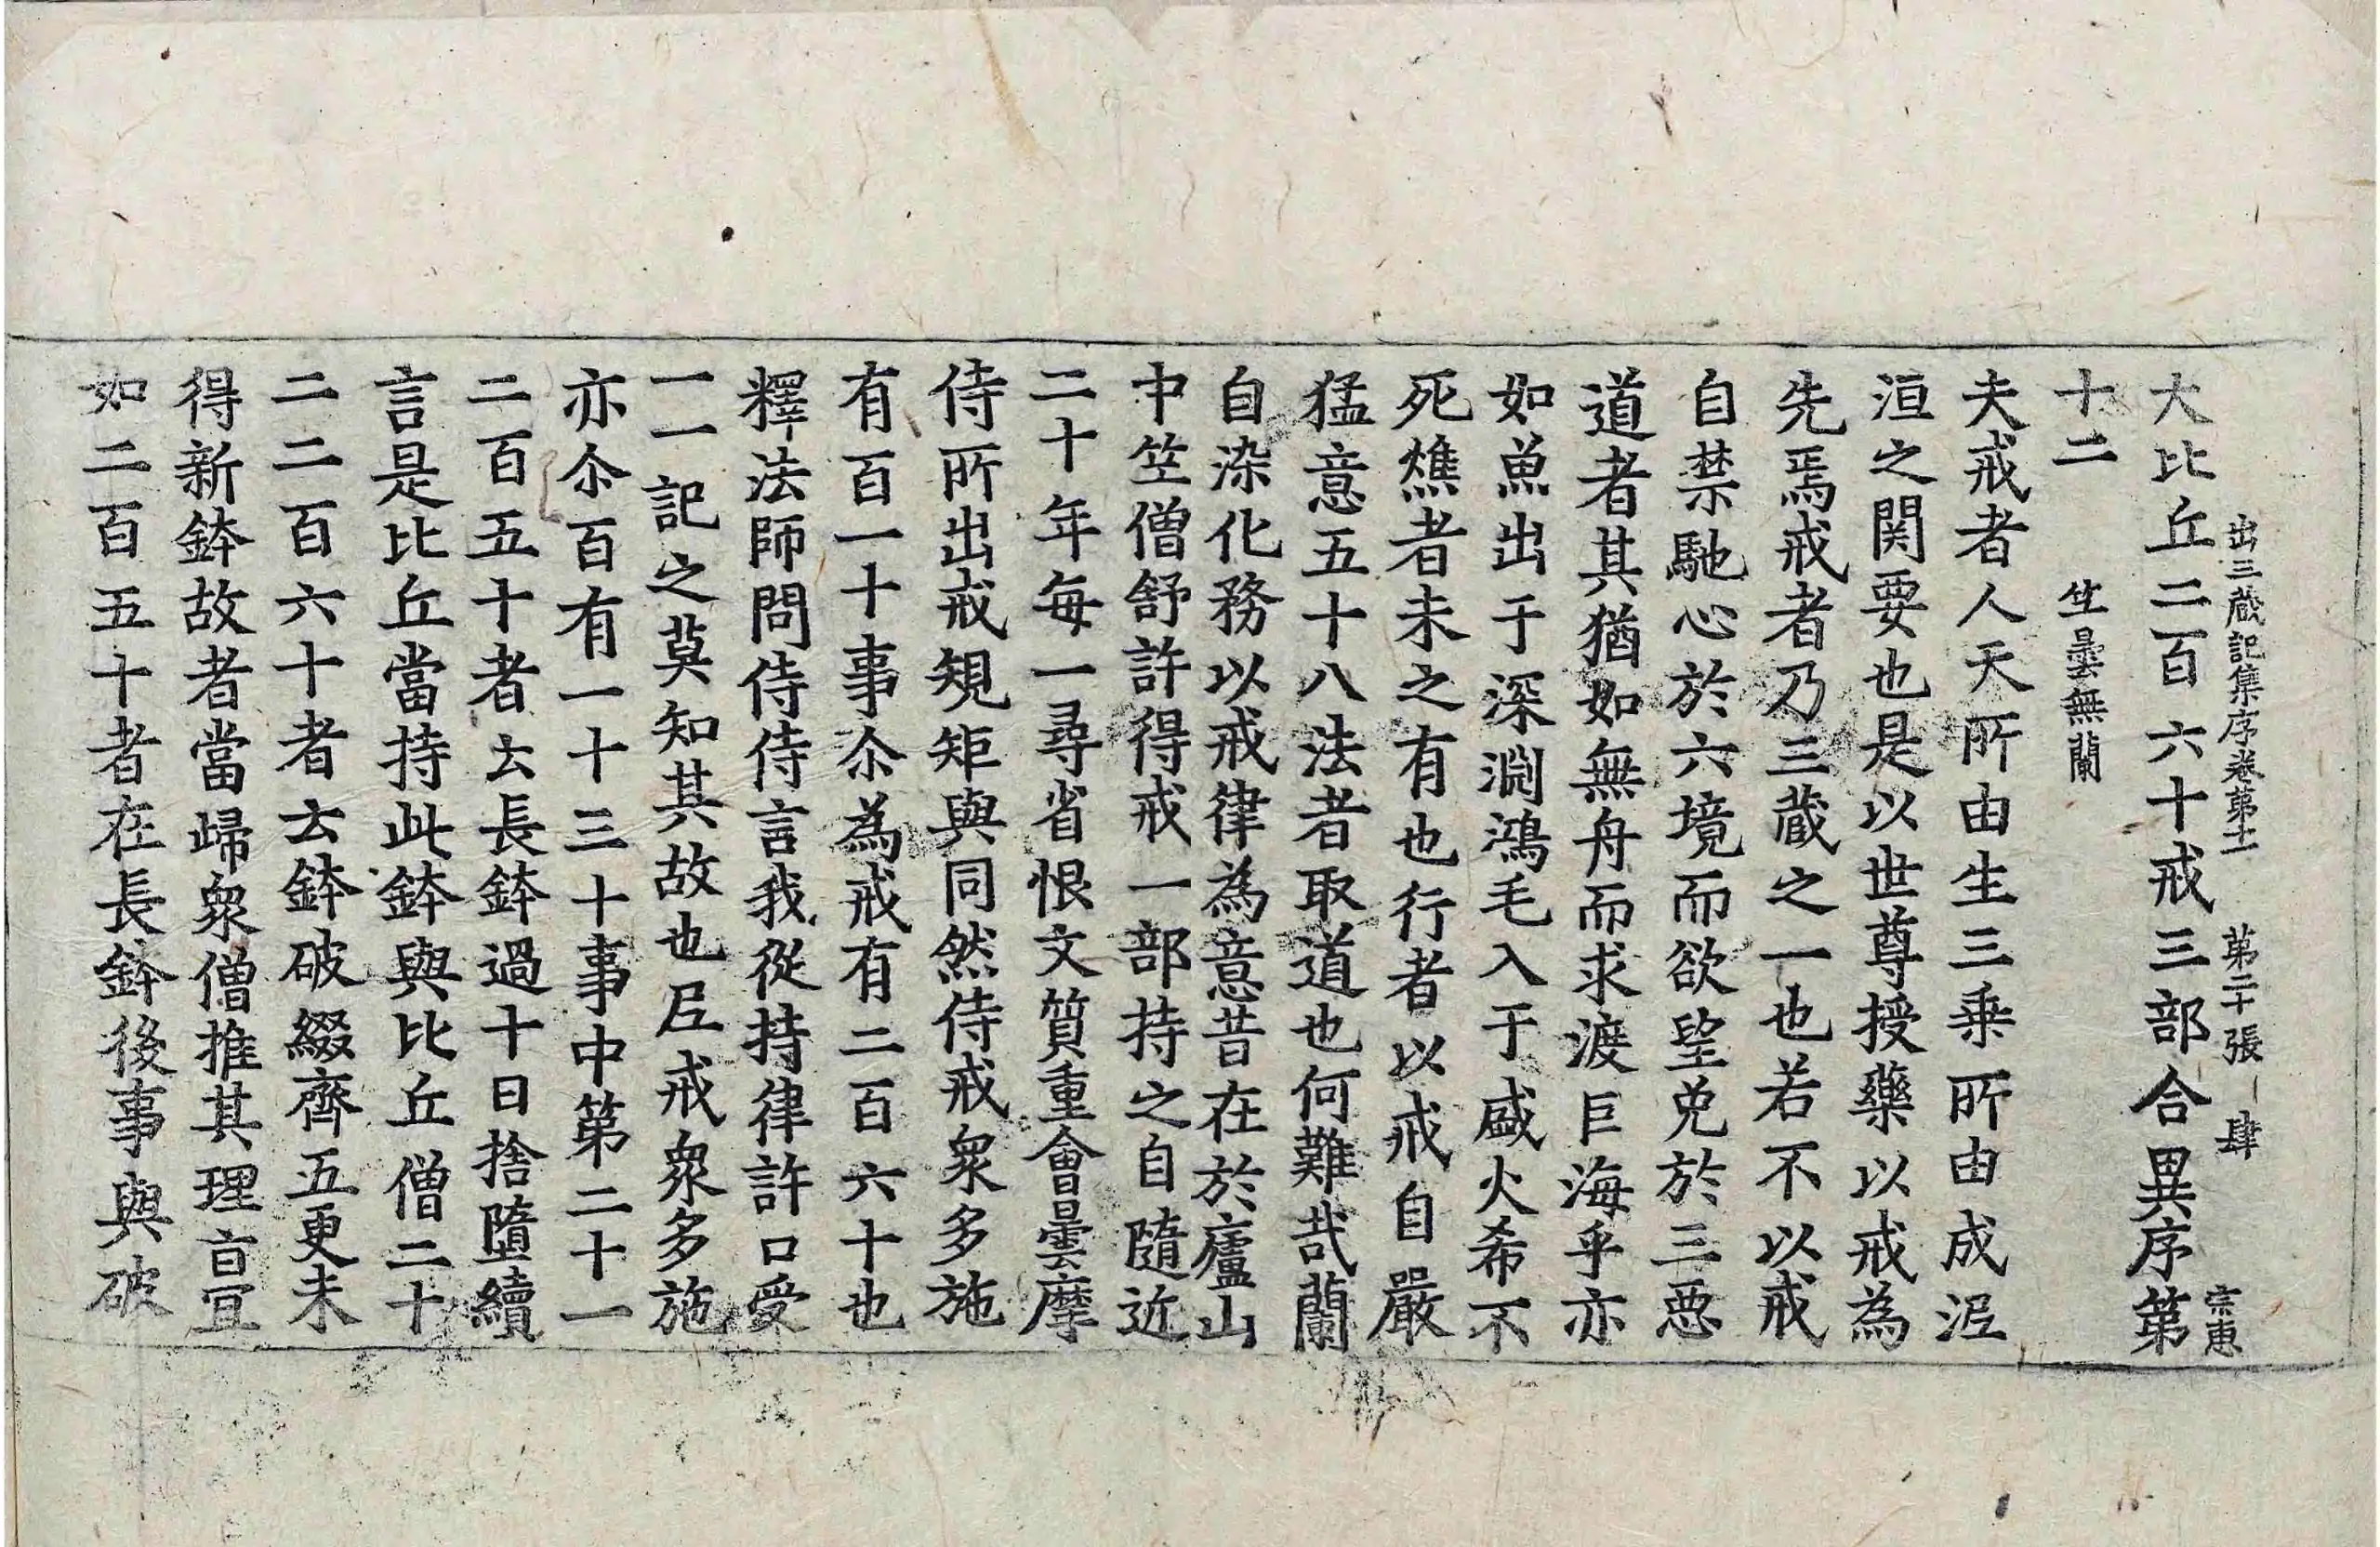 出三藏記集序卷第十一　第二十張　肆　宗惠
大比丘二百六十戒三部合異序第
十二　笁曇無蘭
夫戒者人天所由生三乗所由成泥
洹之関要也是以世尊授藥以戒為
先焉戒者乃三藏之一也若不以戒
自禁馳心於六境而欲望免於三惡
道者其猶如無舟而求渡巨海乎亦
如魚出于深淵鴻毛入于盛火希不
死燋者未之有也行者以戒自嚴
猛意五十八法者取道也何難哉蘭
自染化務以戒律為意昔在於廬山
中笁僧舒許得戒一部持之自隨近
二十年每一尋省恨文質重會曇摩
侍所出戒規矩與同然侍戒衆多施
有百一十事尒為戒有二百六十也
釋法師問侍侍言我從持律許口受
一一記之莫知其故也𡰱戒衆多施
亦尒百有一十三十事中第二十一
二百五十者云長鉢過十日捨墮續
言是比丘當持此鉢與比丘僧二十
二二百六十者云鉢破綴齊五更未
得新鉢故者當歸衆僧推其理旨宜
如二百五十者在長鉢後事與破